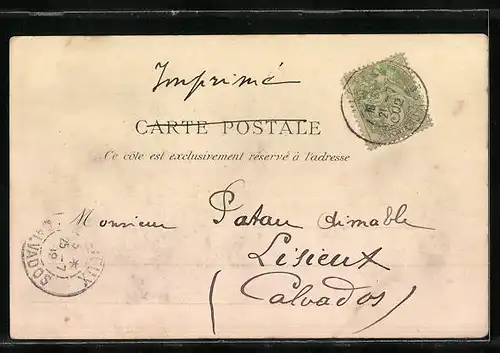 Imprimé
CARTE POSTALE
Ce côté est exclusivement réservé à l'adresse
Monsieur Patau aimable
Lisieux
(Calvados)
21 -7
25 -7
CALVADOS